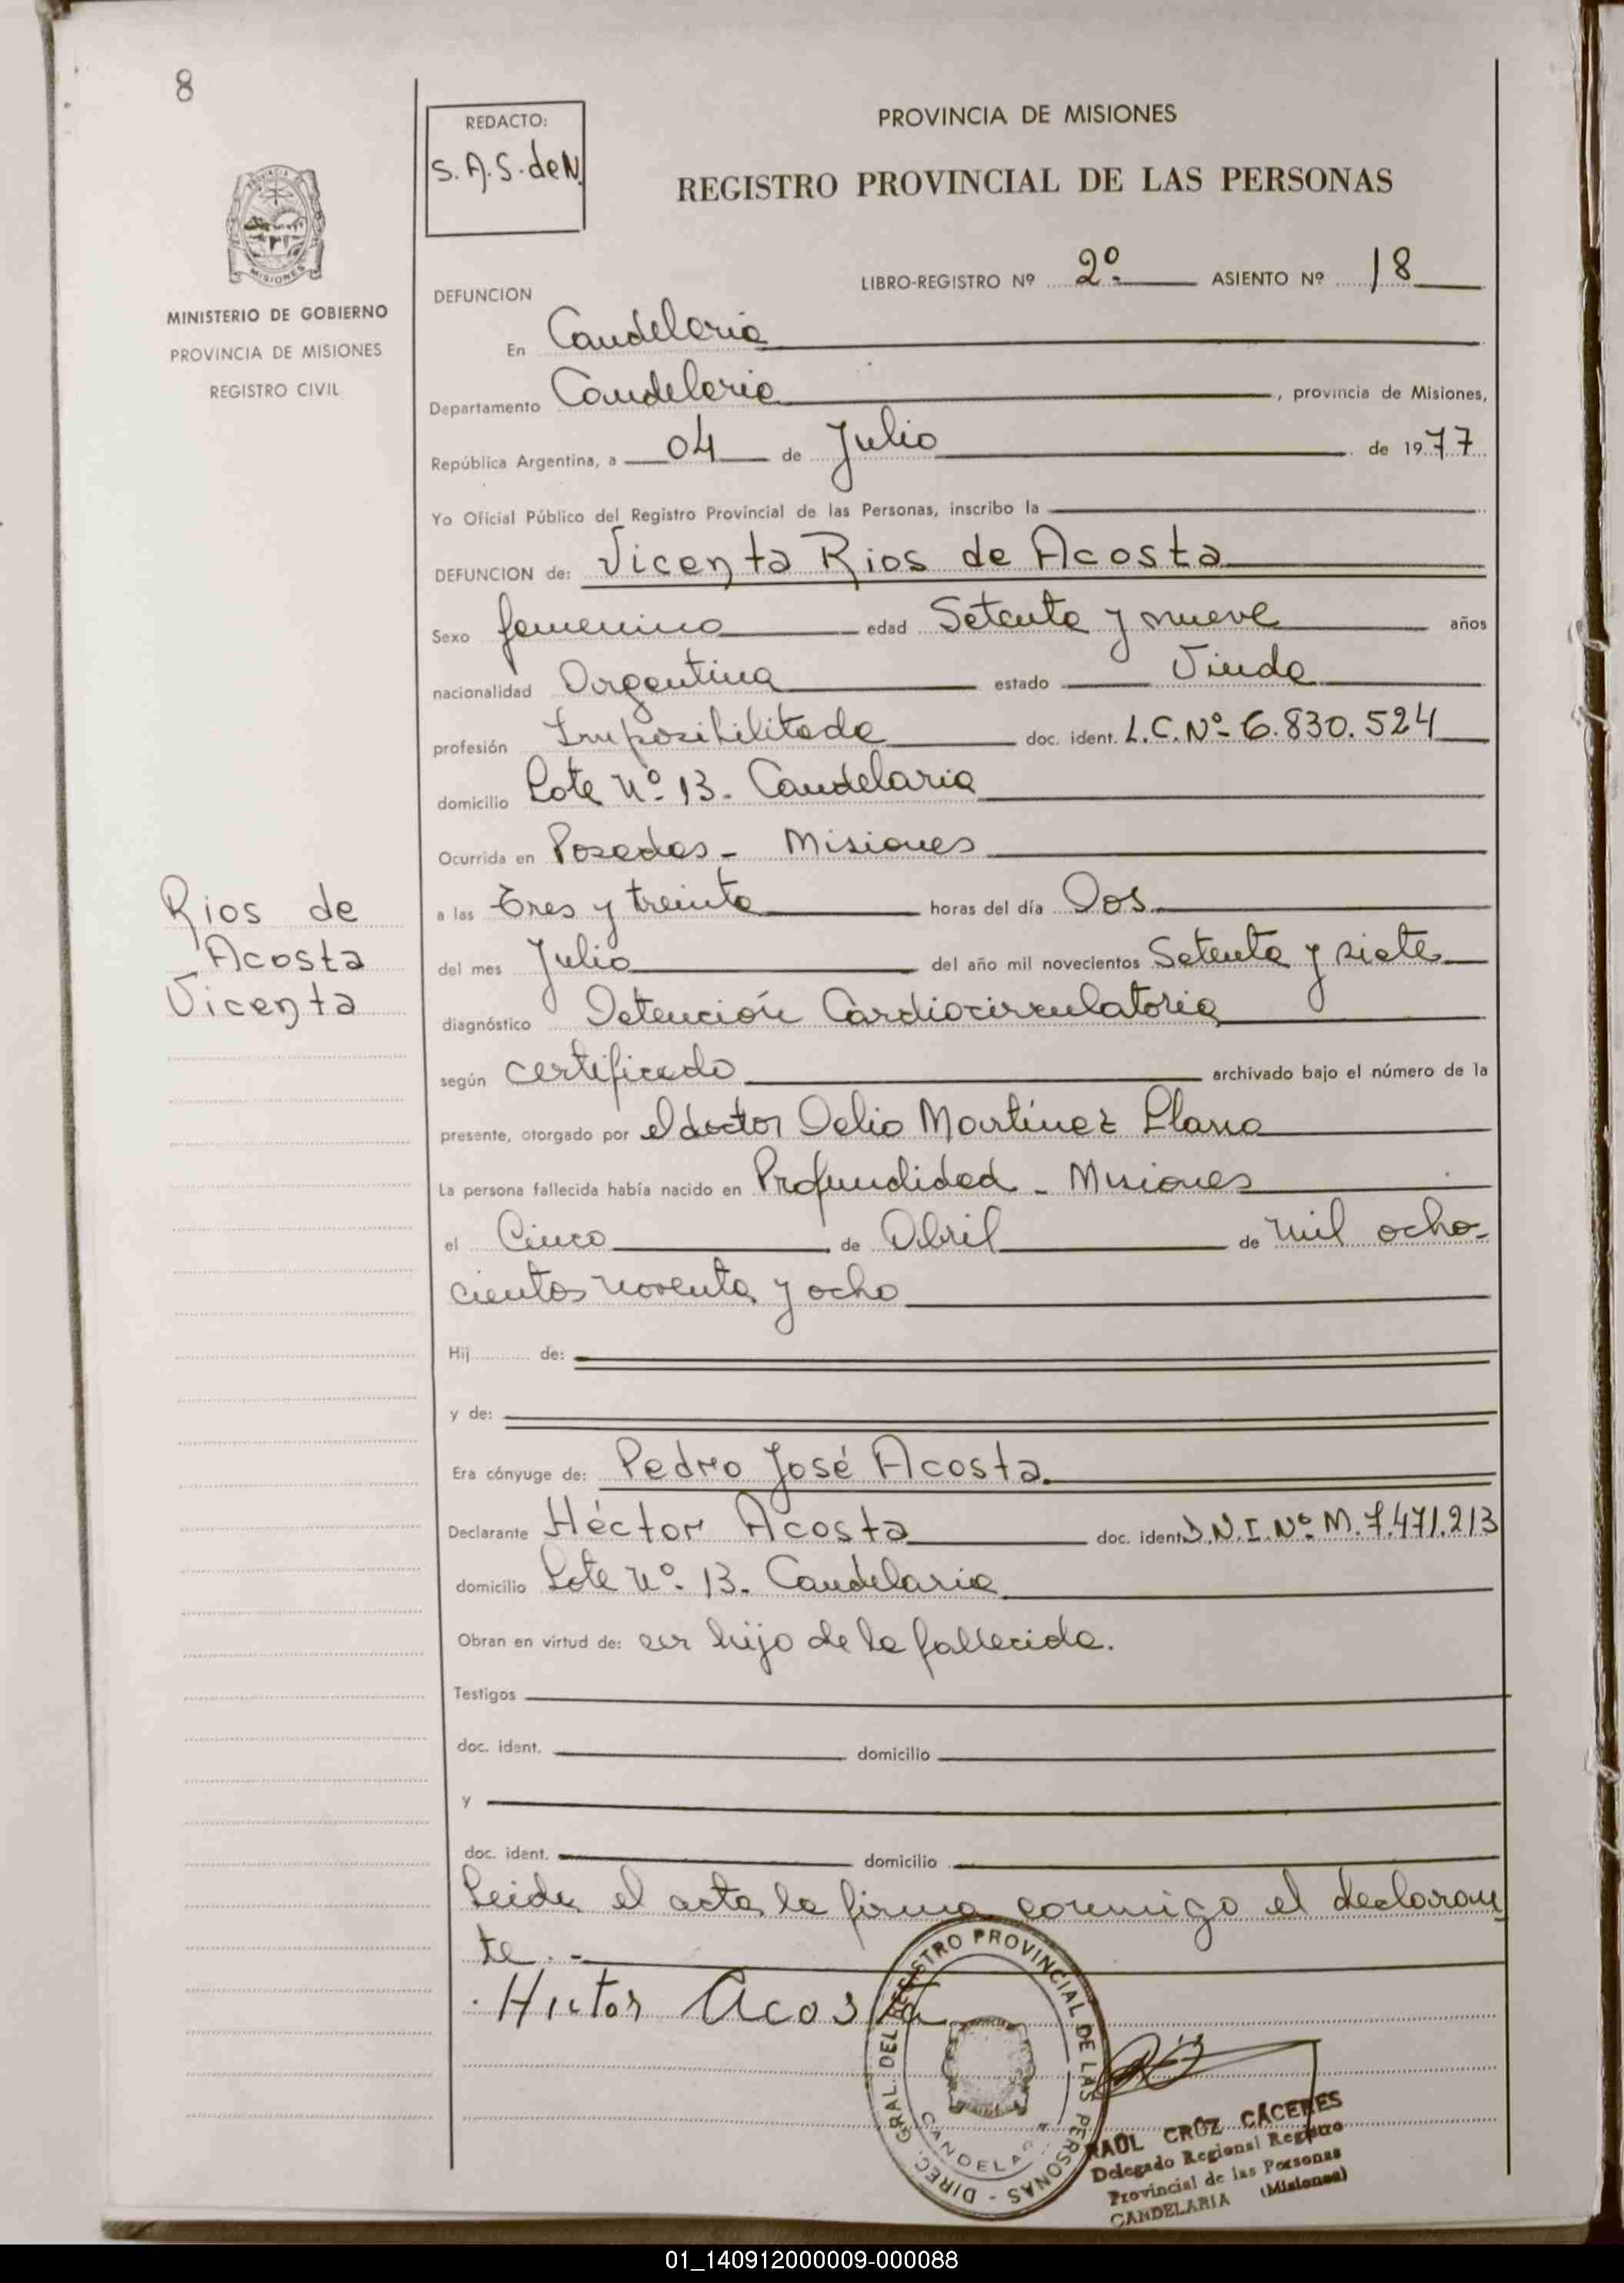 8
REDACTO:
S.A.S. de N.
PROVINCIA DE MISIONES
REGISTRO PROVINCIAL DE LAS PERSONAS
MISIONES
MINISTERIO DE GOBIERNO
PROVINCIA DE MISIONES
REGISTRO CIVIL
LIBRO-REGISTRO Nº 2º ASIENTO Nº 18
DEFUNCION
En Candelaria
Departamento Candelaria, provincia de Misiones,
República Argentina, a 04 de Julio de 1977
Yo Oficial Público del Registro Provincial de las Personas, inscribo la
DEFUNCION de: Vicenta Rios de Acosta
Sexo femenino edad Setenta y nueve años
nacionalidad Argentina estado Viuda
profesión Imposibilitada doc. ident. L.C. Nº 6.830.524
domicilio Lote nº 13. Candelaria
Ocurrida en Posadas - Misiones
a las Tres y treinta horas del día Dos
del mes Julio del año mil novecientos Setenta y siete
diagnóstico Detención Cardiocirculatoria
según certificado archivado bajo el número de la
presente, otorgado por el doctor Delio Martínez Llano
La persona fallecida había nacido en Profundidad - Misiones
el Cinco de Abril de mil ocho-
cientos noventa y ocho
Hij de:
y de:
Era cónyuge de: Pedro José Acosta.
Declarante Héctor Acosta doc. ident. D.N.I. Nº M. 7.471.213
domicilio Lote nº 13. Candelaria
Obran en virtud de: ser hijo de la fallecida.
Testigos
doc. ident. domicilio
y
doc. ident. domicilio
Leida el acta la firma conmigo el declaran-
te. -
Hector Acosta
Rios de
Acosta
Vicenta
DIREC. GRAL. DEL REGISTRO PROVINCIAL DE LAS PERSONAS -
RAUL CRUZ CACERES
Delegado Regional Registro
Provincial de las Personas
CANDELARIA (Misiones)
01_140912000009-000088